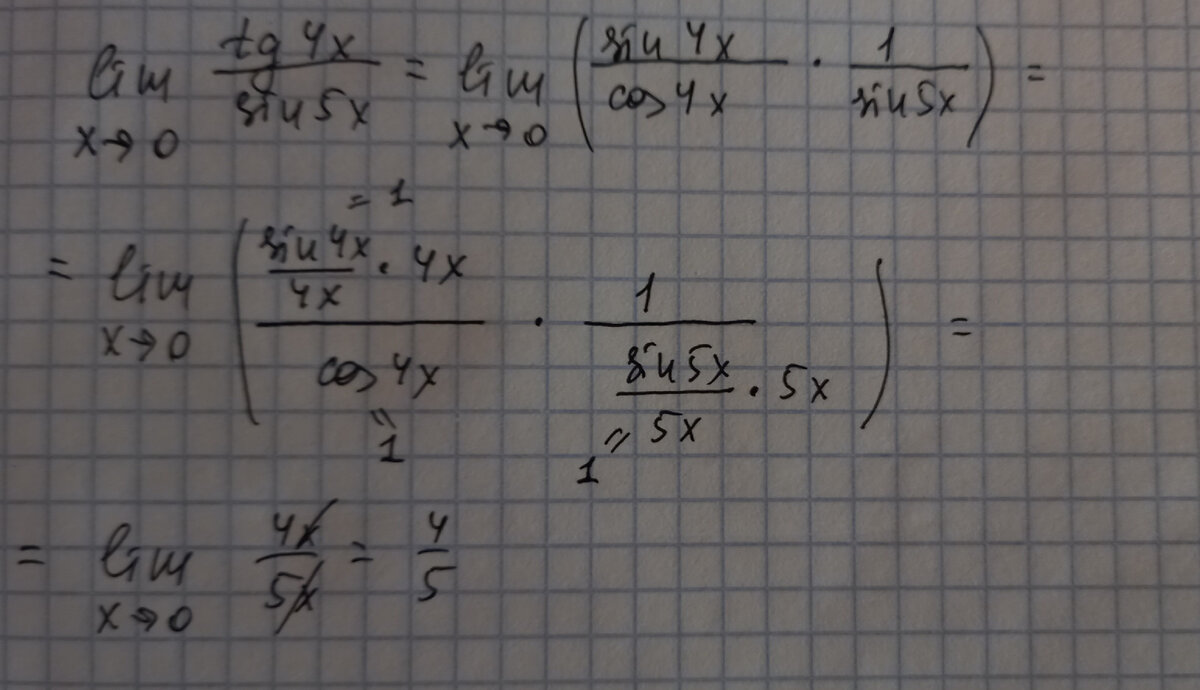 lim x→0 tg 4x / sin 5x = lim x→0 ( sin 4x / cos 4x · 1 / sin 5x ) =
= 1
= lim x→0 ( sin 4x / 4x · 4x / cos 4x · 1 / sin 5x / 5x · 5x ) =
= 1 1 =
= lim x→0 4x / 5x = 4 / 5